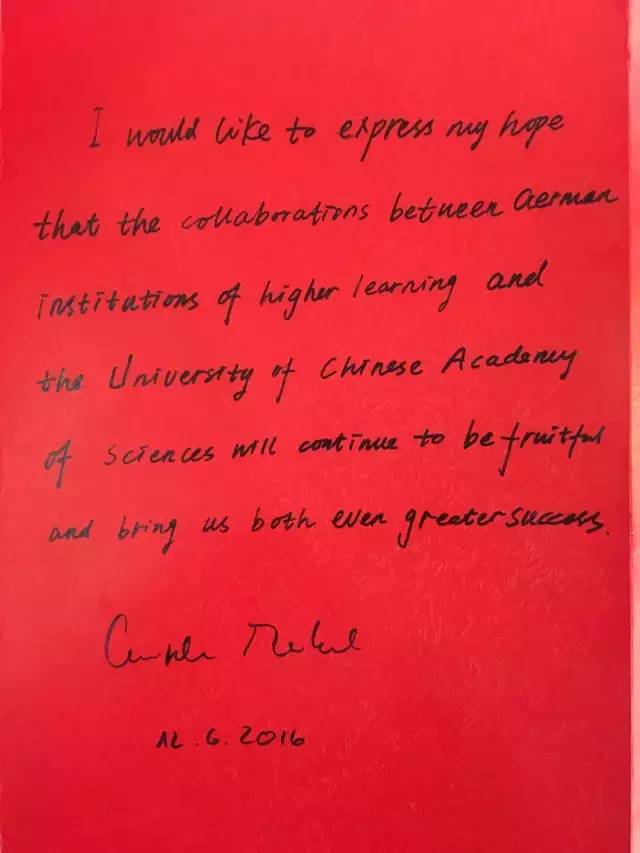 I would like to express my hope
that the collaborations between German
institutions of higher learning and
the University of Chinese Academy
of Sciences will continue to be fruitful
and bring us both even greater success.
Angela Merkel
12.6.2016